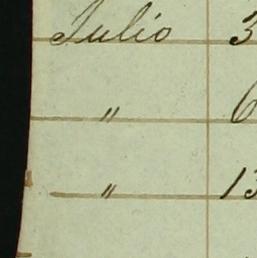 Julio 3
" 6
" 13